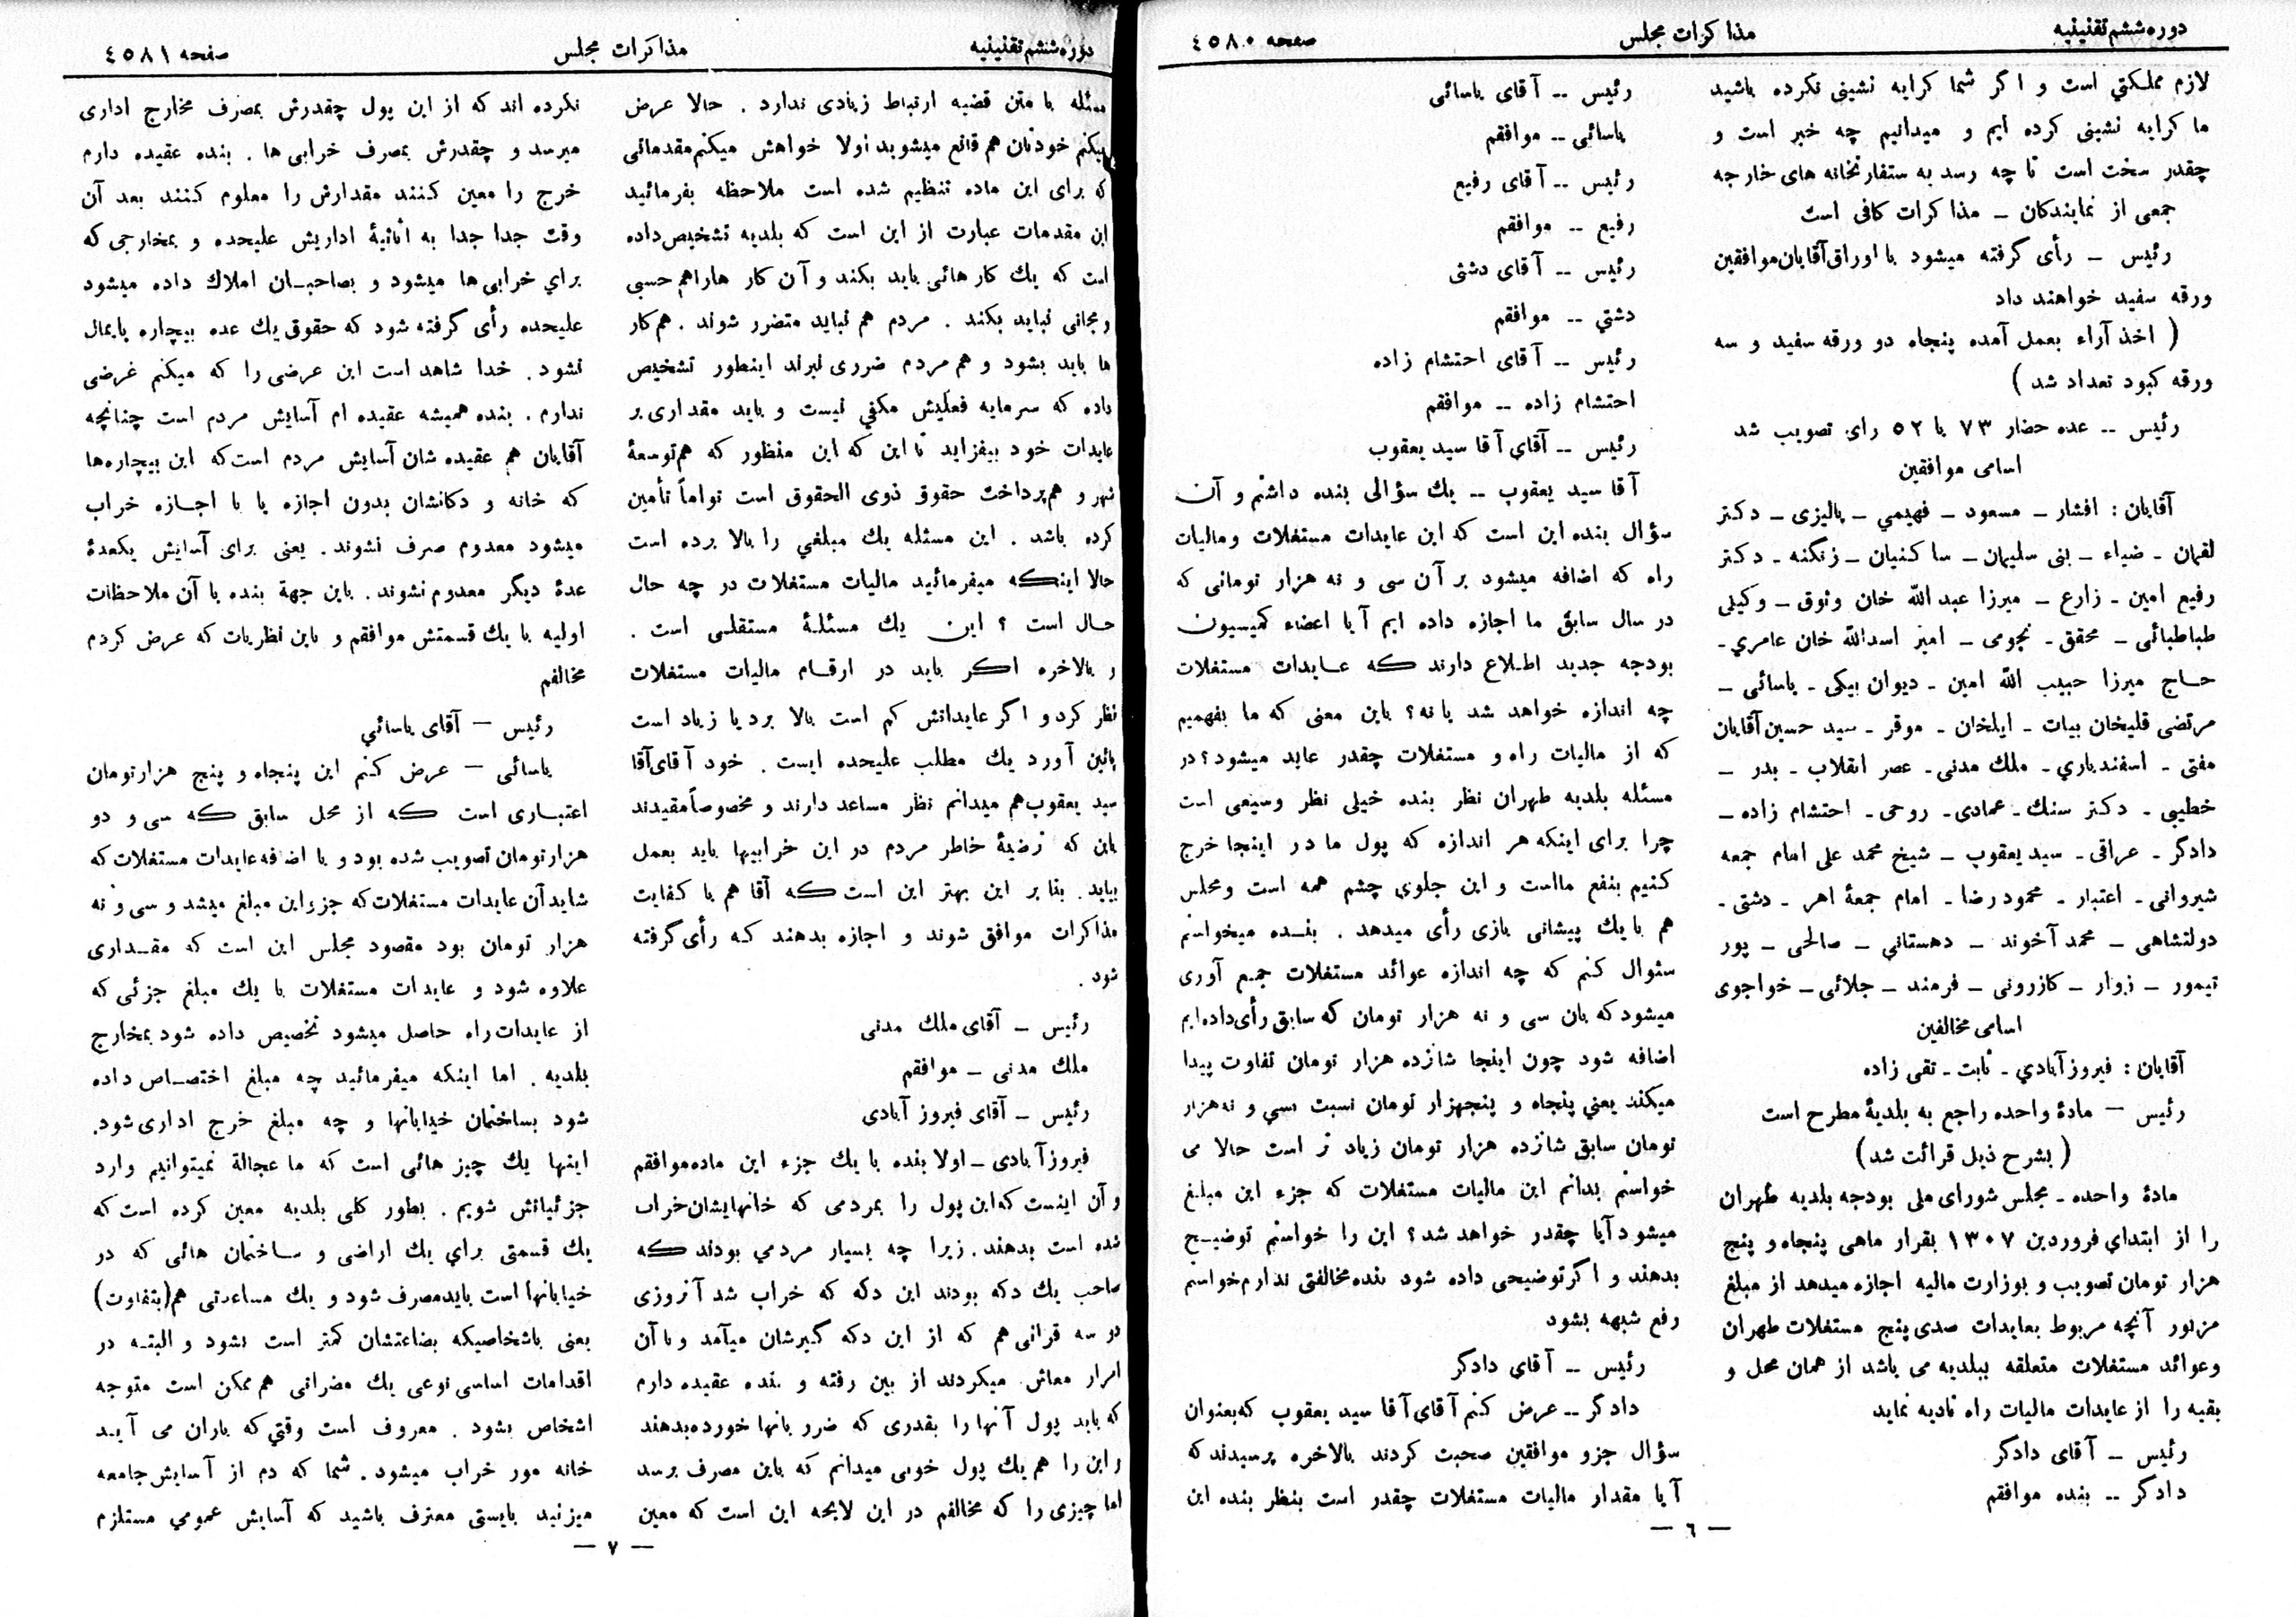 دوره ششم تقنینیه
مذاکرات مجلس
صفحه ٤٥٨٠
لازم مملکتي است و اگر شما کرایه نشینی نکرده باشید
ما کرایه نشینی کرده ایم و میدانیم چه خبر است و
چقدر سخت است تا چه رسد به سفارتخانه های خارجه
جمعی از نمایندکان ـ مذاکرات کافی است
رئیس ـ رأی گرفته میشود با اوراق آقایان موافقین
ورقه سفید خواهند داد
( اخذ آراء بعمل آمده پنجاه دو ورقه سفید و سه
ورقه کبود تعداد شد )
رئیس ــ عده حضار ٧٣ با ٥٢ رای تصویب شد
اسامی موافقین
آقایان : افشار ـ مسعود ـ فهیمي ـ پالیزی ـ دکتر
لقمان ـ ضیاء ـ بنی سلیمان ـ ساکنیان ـ زنگنه ـ دکتر
رفیع امین ـ زارع ـ میرزا عبدالله خان وثوق ـ وکیلی
طباطبائی ـ محقق ـ نجومی ـ امیر اسدالله خان عامري ـ
حاج میرزا حبیب الله امین ـ دیوان بیکی ـ یاسائی ـ
مرتضی قلیخان بیات ـ ایلخان ـ موقر ـ سید حسین آقایان
مفتی ـ اسفندیاري ـ ملك مدنی ـ عصر انقلاب ـ بدر ـ
خطیبی ـ دکتر سنك ـ عمادی ـ روحی ـ احتشام زاده ـ
دادگر ـ عراقی ـ سید یعقوب ـ شیخ محمد علی امام جمعه
شیروانی ـ اعتبار ـ محمود رضا ـ امام جمعهٔ اهر ـ دشتی ـ
دولتشاهی ـ محمد آخوند ـ دهستاني ـ صالحی ـ پور
تیمور ـ زوار ـ کازرونی ـ فرمند ـ جلائی ـ خواجوی
اسامی مخالفین
آقایان : فیروزآبادي ـ ثابت ـ تقی زاده
رئیس ـ مادهٔ واحده راجع به بلدیهٔ مطرح است
( بشرح ذیل قرائت شد )
مادهٔ واحده ـ مجلس شورای ملی بودجه بلدیه طهران
را از ابتداي فروردین ١٣٠٧ بقرار ماهی پنجاه و پنج
هزار تومان تصویب و بوزارت مالیه اجازه میدهد از مبلغ
مزبور آنچه مربوط بعایدات صدی پنج مستغلات طهران
وعوائد مستغلات متعلقه ببلدیه می باشد از همان محل و
بقیه را از عایدات مالیات راه تادیه نماید
رئیس ـ آقای دادگر
دادگر ــ بنده موافقم
رئیس ــ آقای یاسائی
یاسائی ــ موافقم
رئیس ــ آقای رفیع
رفیع ــ موافقم
رئیس ــ آقای دشتی
دشتي ــ موافقم
رئیس ــ آقای احتشام زاده
احتشام زاده ــ موافقم
رئیس ــ آقاي آقا سید یعقوب
آقا سید یعقوب ــ یك سؤالی بنده داشتم و آن
سؤال بنده این است که این عایدات مستغلات ومالیات
راه که اضافه میشود بر آن سی و نه هزار تومانی که
در سال سابق ما اجازه داده ایم آیا اعضاء کمیسیون
بودجه جدید اطلاع دارند که عایدات مستغلات
چه اندازه خواهد شد یا نه ؟ باین معنی که ما بفهمیم
که از مالیات راه و مستغلات چقدر عاید میشود ؟ در
مسئله بلدیه طهران نظر بنده خیلی نظر وسیعی است
چرا برای اینکه هر اندازه که پول ما در اینجا خرج
کنیم بنفع مااست و این جلوي چشم همه است ومجلس
هم با یك پیشانی بازی رأی میدهد . بنده میخواستم
سئوال کنم که چه اندازه عوائد مستغلات جمع آوری
میشود که بان سی و نه هزار تومان که سابق رأی داده ایم
اضافه شود چون اینجا شانزده هزار تومان تفاوت پیدا
میکند یعني پنجاه و پنجهزار تومان نسبت بسي و نه هزار
تومان سابق شانزده هزار تومان زیاد تر است حالا می
خواستم بدانم این مالیات مستغلات که جزء این مبلغ
میشود آیا چقدر خواهد شد ؟ این را خواستم توضیح
بدهند و اگر توضیحی داده شود بنده مخالفتی ندارم خواستم
رفع شبهه بشود
رئیس ــ آقاي دادگر
دادگر ــ عرض کنم آقای آقا سید یعقوب که بعنوان
سؤال جزو موافقین صحبت کردند بالاخره پرسیدند که
آیا مقدار مالیات مستغلات چقدر است بنظر بنده این
— ٦ —
دوره ششم تقنینیه
مذاکرات مجلس
صفحه ٤٥٨١
مسئله با متن قضیه ارتباط زیادی ندارد . حالا عرض
میکنم خودتان هم قانع میشوید اولا خواهش میکنم مقدماتی
که برای این ماده تنظیم شده است ملاحظه بفرمائید
این مقدمات عبارت از این است که بلدیه تشخیص داده
است که یك کار هائی باید بکند و آن کار هاراهم حسبی
و مجانی نباید بکند . مردم هم نباید متضرر شوند . هم کار
ها باید بشود و هم مردم ضرری نبرند اینطور تشخیص
داده که سرمایه فعلیش مکفي نیست و باید مقداری بر
عایدات خود بیفزاید تا این که این منظور که هم توسعهٔ
شهر و هم پرداخت حقوق ذوی الحقوق است تواماً تأمین
کرده باشد . این مسئله یك مبلغي را بالا برده است
حالا اینکه میفرمائید مالیات مستغلات در چه حال
حال است ؟ این یك مسئلهٔ مستقلی است .
و بالاخره اکر باید در ارقام مالیات مستغلات
نظر کرد و اگر عایداتش کم است بالا برد یا زیاد است
پائین آورد یك مطلب علیحده ایست . خود آقای آقا
سید یعقوب هم میدانم نظر مساعد دارند و مخصوصاً مقیدند
باین که ترضیهٔ خاطر مردم در این خرابیها باید بعمل
بیاید . بنا بر این بهتر این است که آقا هم با کفایت
مذاکرات موافق شوند و اجازه بدهند که رأی گرفته
شود .
رئیس ـ آقای ملك مدنی
ملك مدنی ـ موافقم
رئیس ـ آقای فیروز آبادی
فیروزآبادی ـ اولا بنده با یك جزء این ماده موافقم
و آن اینست که این پول را بمردمی که خانهایشان خراب
شده است بدهند . زیرا چه بسیار مردمي بودند که
صاحب یك دکه بودند این دکه که خراب شد آنروزی
دو سه قرانی هم که از این دکه گیرشان میآمد و با آن
امرار معاش میکردند از بین رفته و بنده عقیده دارم
که باید پول آنها را بقدری که ضرر بانها خورده بدهند
و این را هم یك پول خوبی میدانم که باین مصرف برسد
اما چیزی را که مخالفم در این لایحه این است که معین
نکرده اند که از این پول چقدرش بمصرف مخارج اداری
میرسد و چقدرش بمصرف خرابی ها . بنده عقیده دارم
خرج را معین کنند مقدارش را معلوم کنند بعد آن
وقت جدا جدا به اثاثیهٔ اداریش علیحده و بمخارجی که
براي خرابی ها میشود و بصاحبان املاك داده میشود
علیحده رأی گرفته شود که حقوق یك عده بیچاره پایمال
نشود . خدا شاهد است این عرضی را که میکنم غرضی
ندارم . بنده همیشه عقیده ام آسایش مردم است چنانچه
آقایان هم عقیده شان آسایش مردم است که این بیچاره‌ها
که خانه و دکانشان بدون اجازه یا با اجازه خراب
میشود معدوم صرف نشوند . یعنی برای آسایش یکعدهٔ
عدهٔ دیگر معدوم نشوند . باین جهة بنده با آن ملاحظات
اولیه با یك قسمتش موافقم و باین نظریات که عرض کردم
مخالفم
رئیس — آقای یاسائي
یاسائی — عرض کنم این پنجاه و پنج هزارتومان
اعتباری است که از محل سابق که سی و دو
هزار تومان تصویب شده بود و با اضافه عایدات مستغلات که
شاید آن عایدات مستغلات که جزء این مبلغ میشد و سی و نه
هزار تومان بود مقصود مجلس این است که مقداری
علاوه شود و عایدات مستغلات با یك مبلغ جزئی که
از عایدات راه حاصل میشود تخصیص داده شود بمخارج
بلدیه . اما اینکه میفرمائید چه مبلغ اختصاص داده
شود بساختمان خیابانها و چه مبلغ خرج اداری شود .
اینها یك چیز هائی است که ما عجالة نمیتوانیم وارد
جزئیاتش شویم . بطور کلی بلدیه معین کرده است که
یك قسمتی براي یك اراضی و ساختمان هائی که در
خیابانها است باید مصرف شود و یك مساعدتی هم (بتفاوت)
یعنی باشخاصیکه بضاعتشان کمتر است بشود و البته در
اقدامات اساسی نوعی یك مضراتی هم ممکن است متوجه
اشخاص بشود . معروف است وقتي که باران می آید
خانه مور خراب میشود . شما که دم از آسایش جامعه
میزنید بایستی معترف باشید که آسایش عمومي مستلزم
— ٧ —